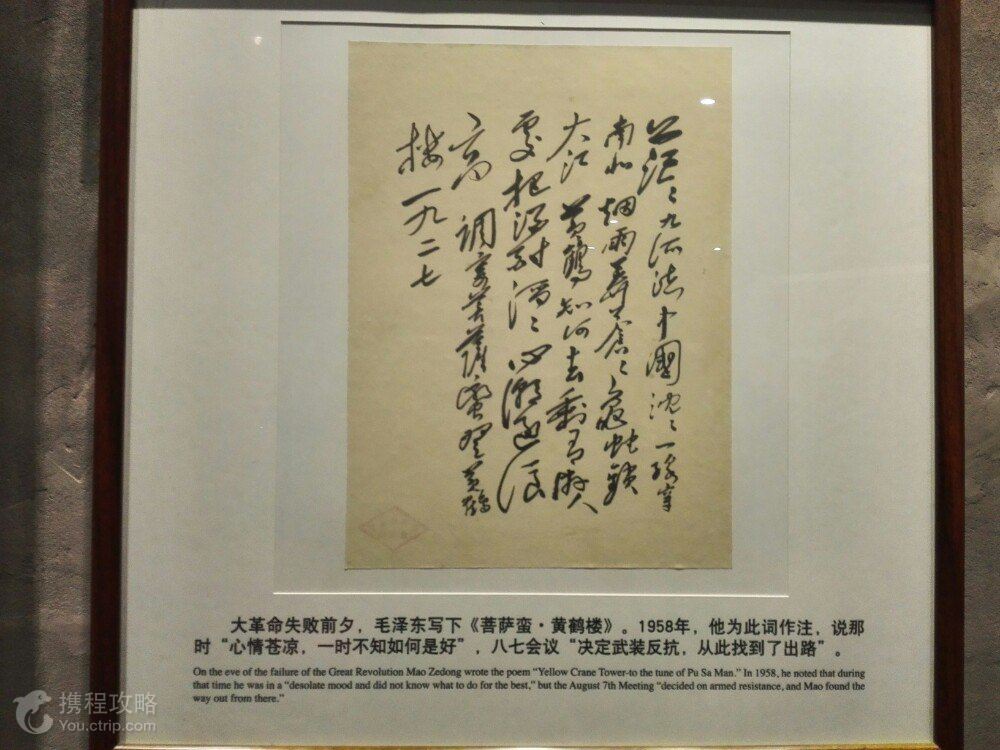 茫〻九派流中國沈〻一線穿
南北烟雨莽蒼〻龜蛇鎖
大江 黃鶴知何去剩有遊人
處把酒酎滔〻心潮逐浪
高 調寄菩薩蠻登黃鶴
樓 一九二七
大革命失败前夕，毛泽东写下《菩萨蛮·黄鹤楼》。1958年，他为此词作注，说那
时“心情苍凉，一时不知如何是好”，八七会议“决定武装反抗，从此找到了出路”。
On the eve of the failure of the Great Revolution Mao Zedong wrote the poem “Yellow Crane Tower-to the tune of Pu Sa Man.” In 1958, he noted that during
that time he was in a “desolate mood and did not know what to do for the best,” but the August 7th Meeting “decided on armed resistance, and Mao found the
way out from there.”
携程攻略
You.ctrip.com